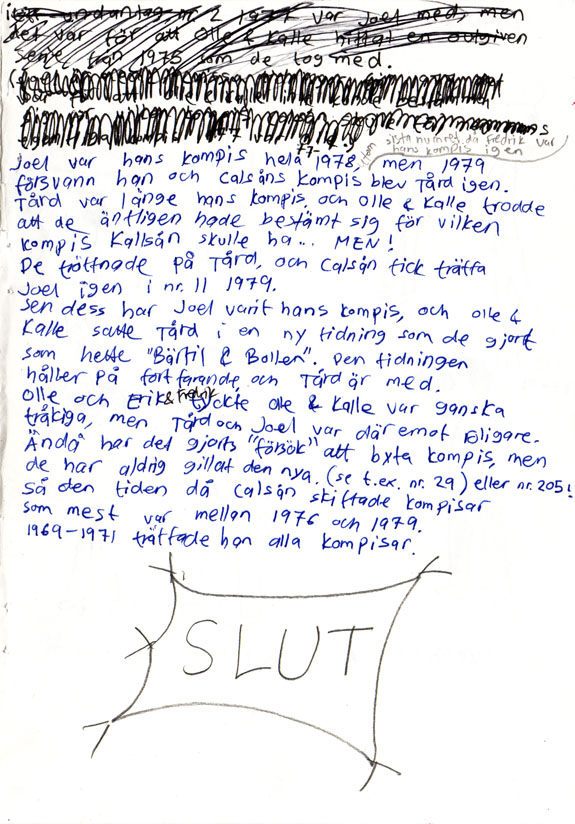 ett undantag nr 2 1977 var Joel med, men
det var för att Olle & Kalle hittat en outgiven
serie från 1975 som de tog med.
sista numret då Fredrik var
hans kompis igen
77-
Joel var hans kompis hela 1978, men 1979
försvann han och Calsåns kompis blev Tård igen.
Tård var länge hans kompis, och Olle & Kalle trodde
att de äntligen hade bestämt sig för vilken
kompis Kallsån skulle ha... MEN!
De tröttnade på Tård, och Calsån fick träffa
Joel igen i nr. 11 1979.
Sen dess har Joel varit hans kompis, och Olle &
Kalle satte Tård i en ny tidning som de gjort
som hette "Bärtil & Bollen". Den tidningen
håller på fortfarande, och Tård är med.
Olle och Erik & Fredrik tyckte Olle & Kalle var ganska
tråkiga, men Tård och Joel var däremot roligare.
Ändå har det gjorts "försök" att byta kompis, men
de har aldrig gillat den nya. (se t.ex. nr. 29) eller nr. 205!
Så den tiden då Calsån skiftade kompisar
som mest var mellan 1976 och 1979.
1969-1971 träffade han alla kompisar.
SLUT